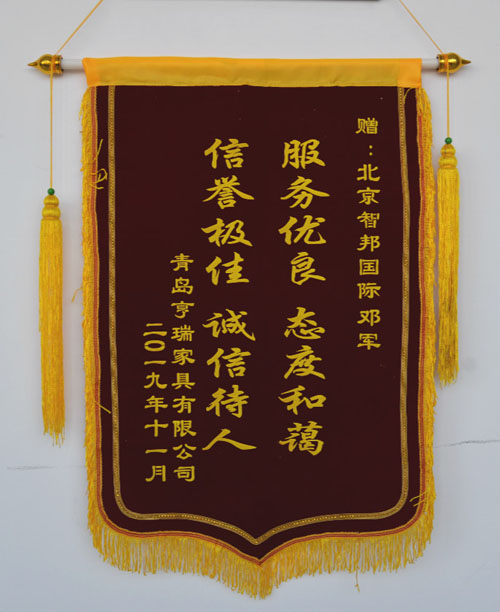 赠：北京智邦国际邓军
服务优良 态度和蔼
信誉极佳 诚信待人
青岛亨瑞家具有限公司
二〇一九年十一月